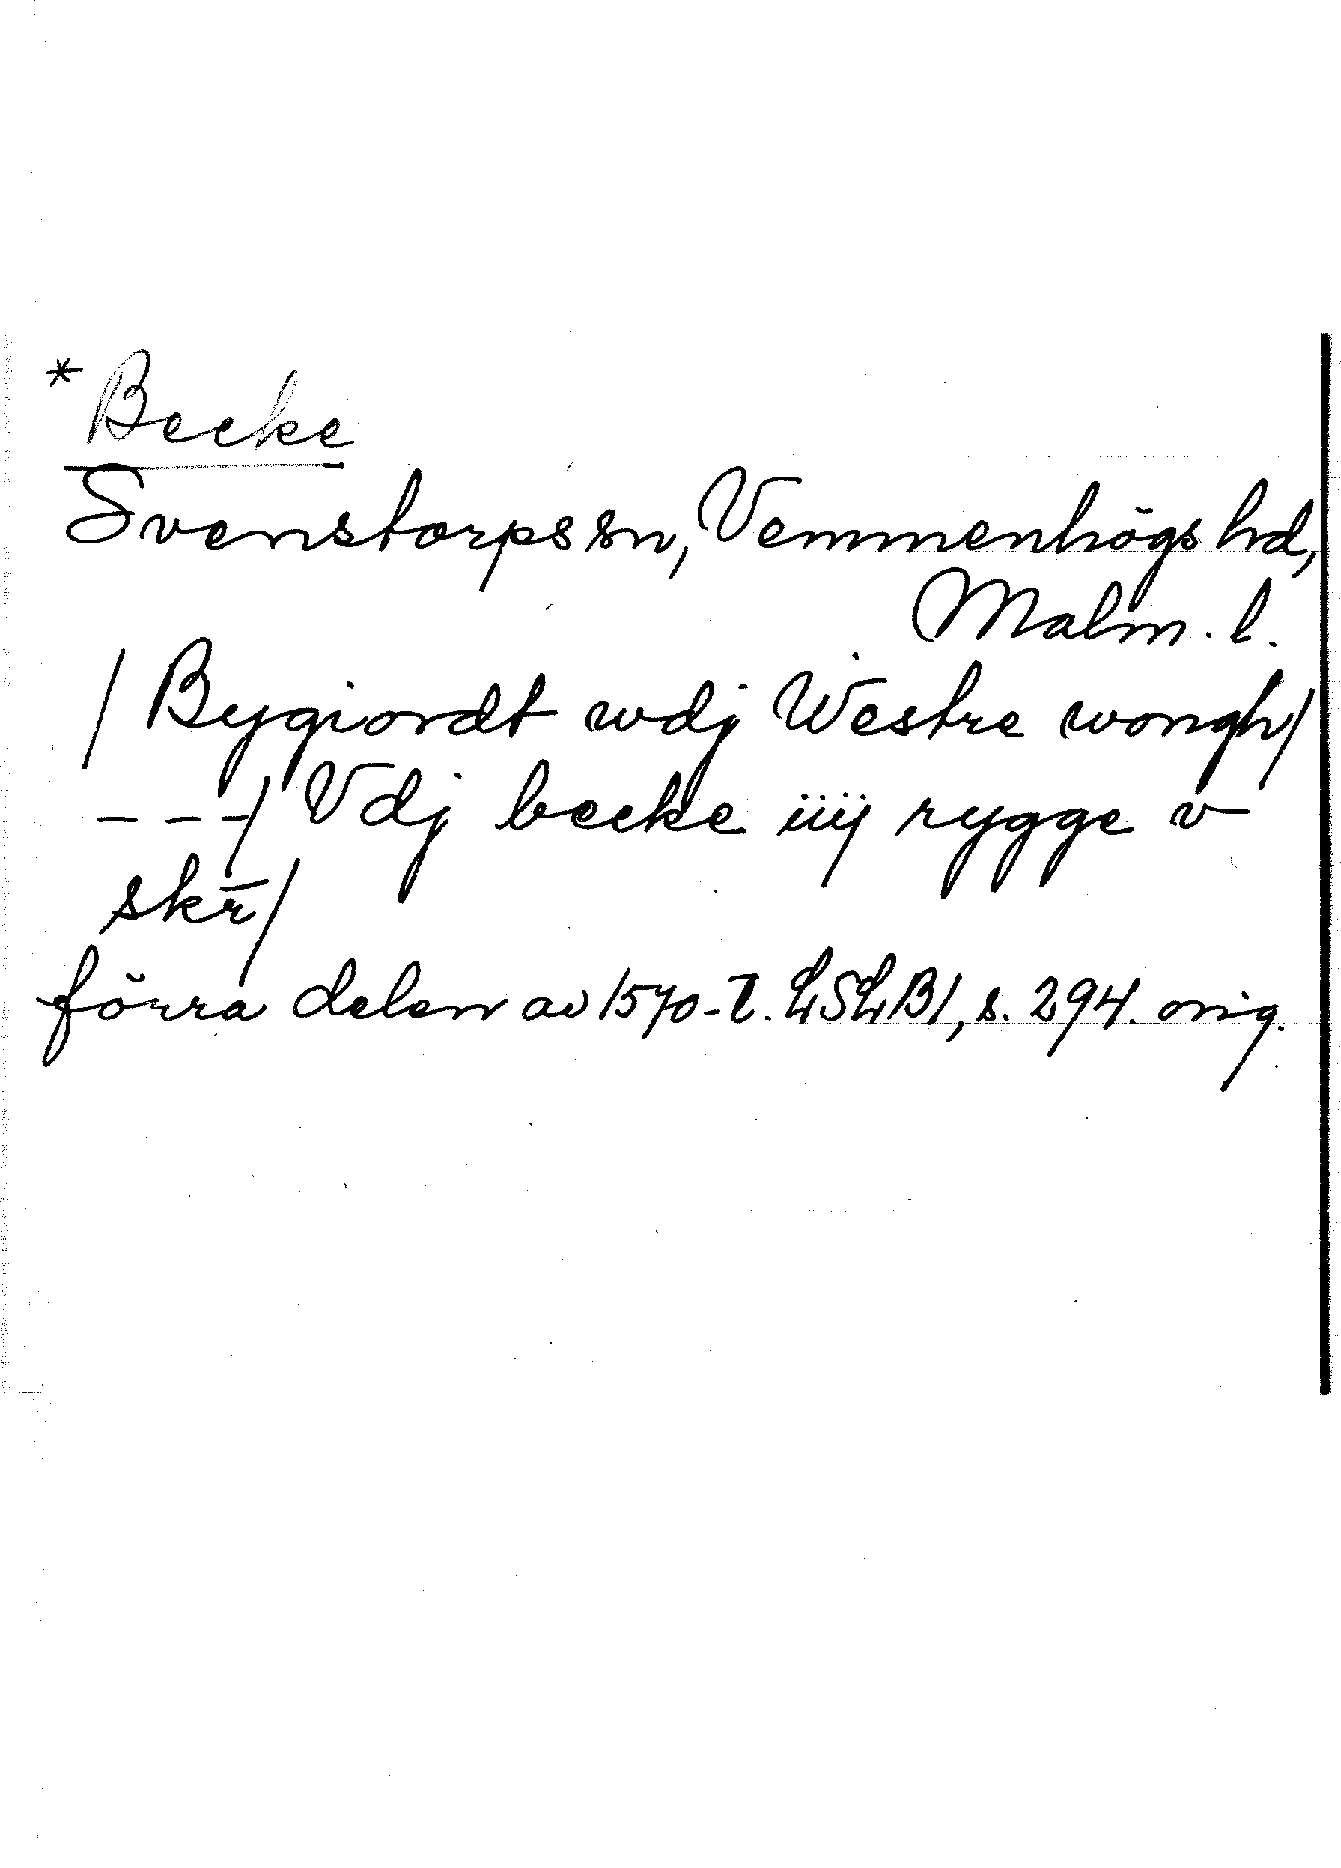 * Becke
Svenstorps sn, Vemmenhögs hd,
Malm. l.
/ Bygiordt wdj Westre wongh/
---/ Vdj becke iiij rygge v
skr̄/
förra delen av 1570-t. LSLB1, s. 294. orig.